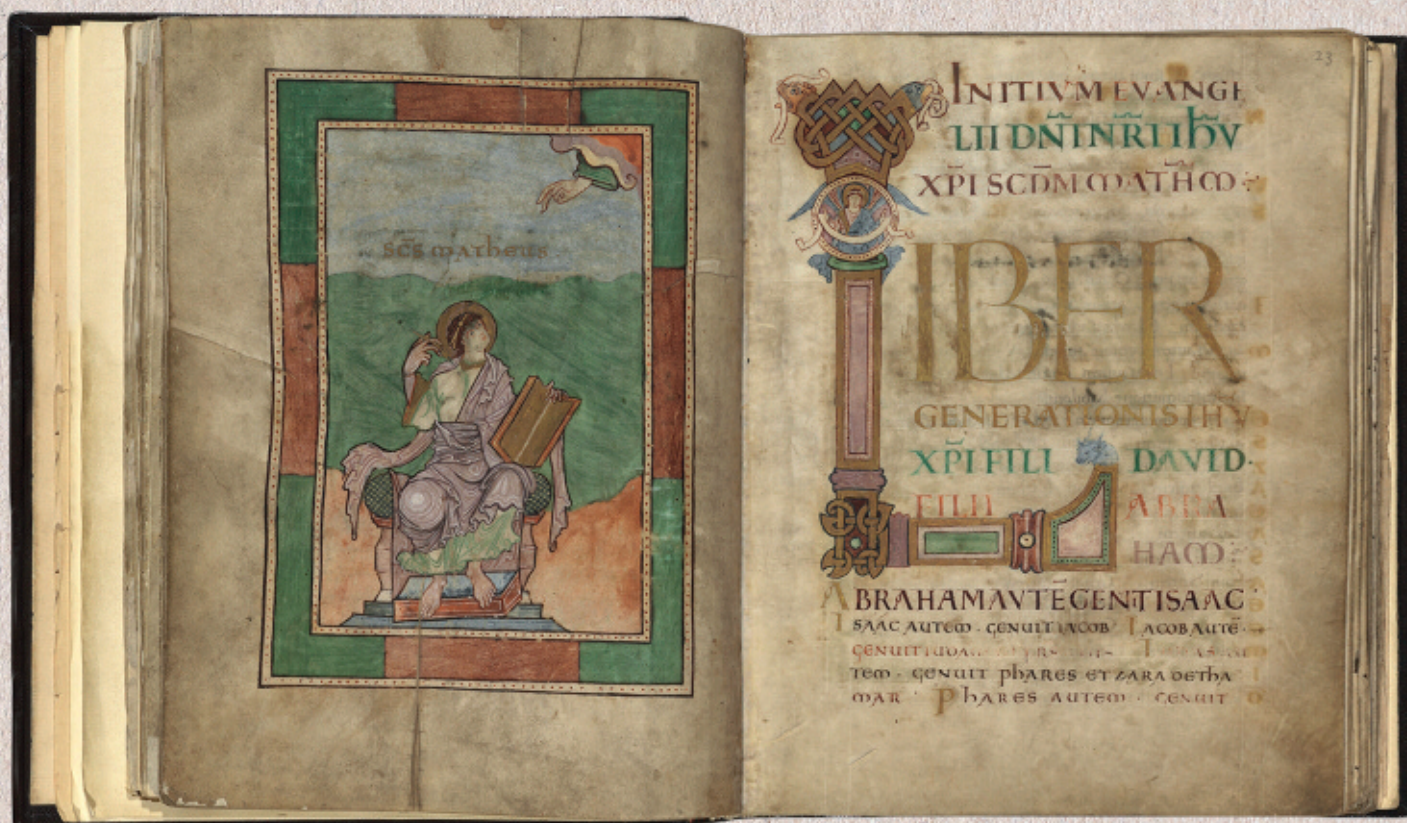 scs matheus
23
INITIVM EVANGE
LII DNI NRI IHV
XPI SCDM MATHM
LIBER
GENERATIONIS IHV
XPI FILI DAVID
FILII ABRA
HAM
ABRAHAM AVTE GENT ISAAC
ISAAC AUTEM · GENUIT IACOB IACOB AUTE
GENUIT IUDA
TEM · GENUIT PHARES ET ZARA DE THA
MAR PHARES AUTEM · GENUIT